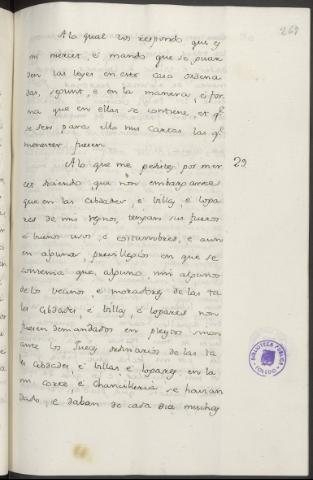 269
A lo qual vos respondo que es
mi merced, é mando que se guar
den las leyes en este caso ordena
das, segunt, en la manera, é for
ma que en ellas se contiene, et q.e
se den para ello mis Cartas las q.e
menester fueren
A lo que me pedistes por mer 29
cet diciendo que non embargante
que en las Cibdades, é Villas, é logа
res de mis regnos, tengan sus fueros
é buenos usos, é costumbres, é aun
en algunos, previllegios en que se
contenia que, alguno, nin algunos
de los vecinos, é moradores de las ta
les Cibdades, é Villas, é logares non
fuesen demandados en pleytos salvo
ante los Jueces ordinarios de las ta
les Cibdades, é Villas é logares en la
mi corte, é Chancilleria se havian
dado, é daban de cada dia muchas
BIBLIOTECA PUBLICA
TOLEDO